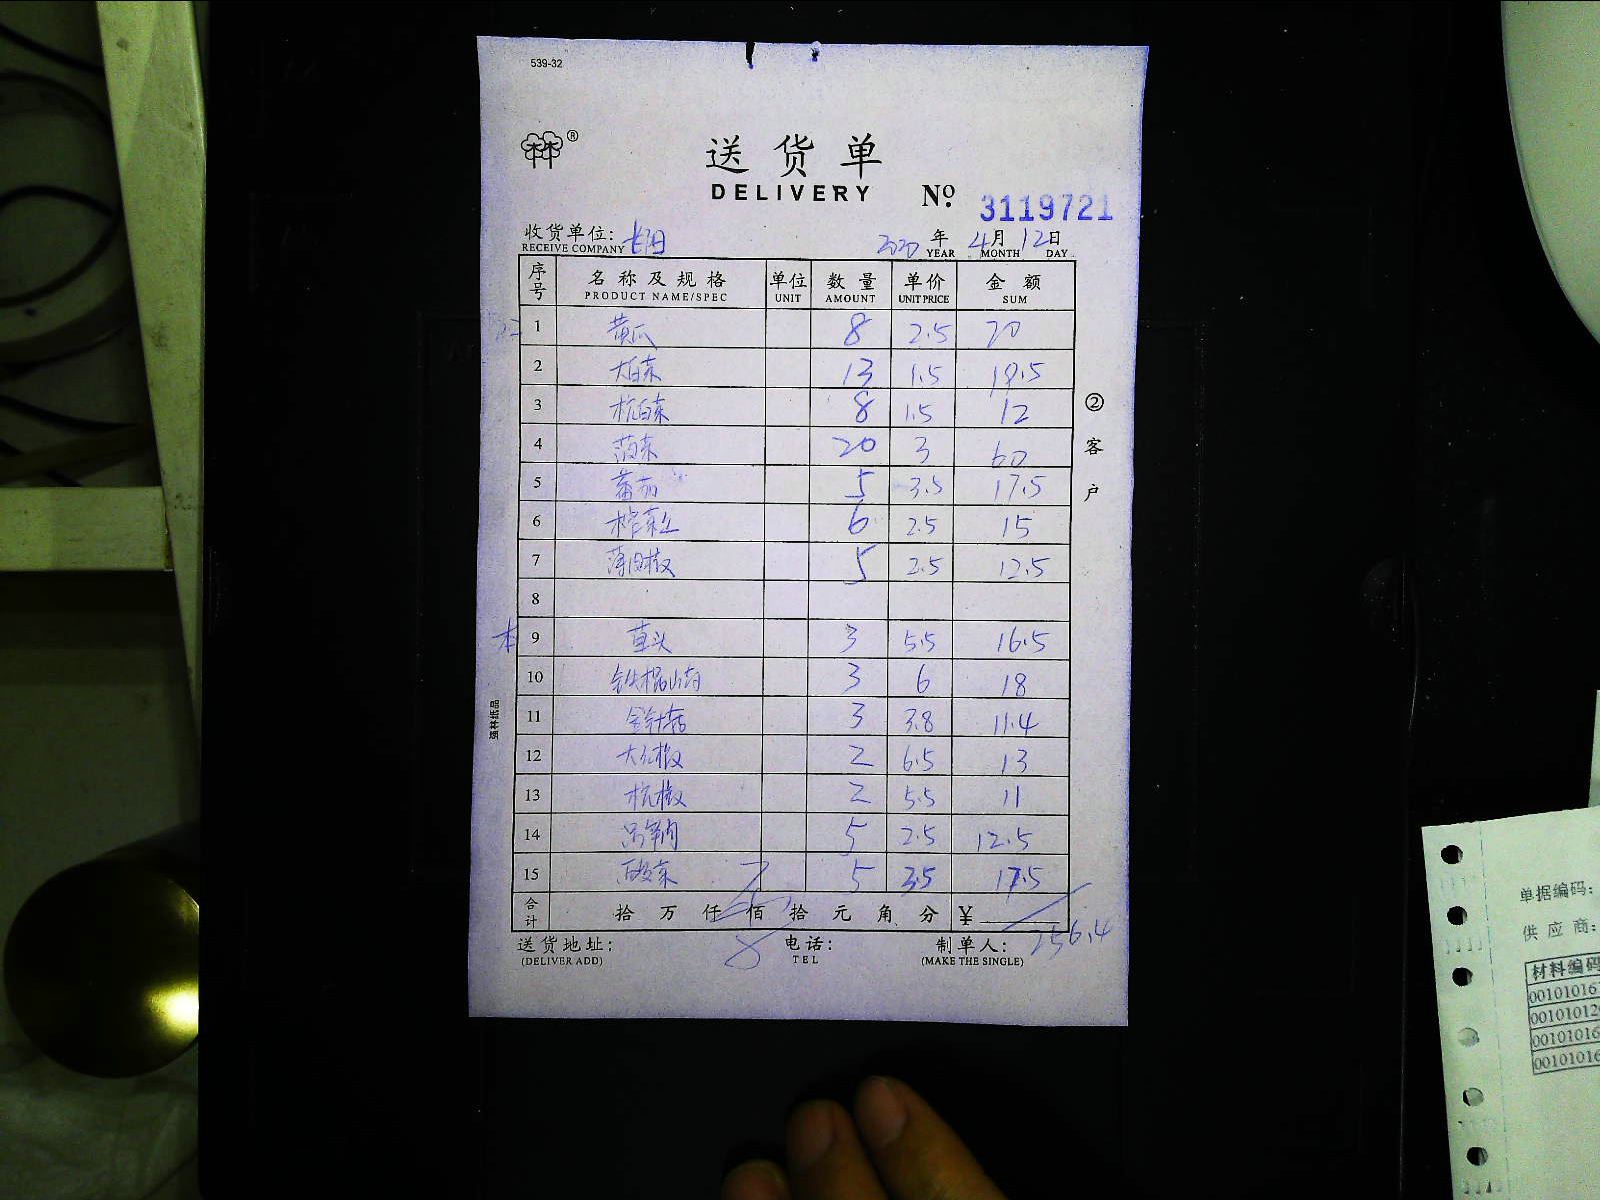 539-32
林®
送货单
DELIVERY No. 3119721
收货单位: 长阳 2020年 4月 12日
RECEIVE COMPANY YEAR MONTH DAY
序号 名称及规格 单位 数量 单价 金额
PRODUCT NAME/SPEC UNIT AMOUNT UNIT PRICE SUM
1 黄瓜 8 2.5 20
2 大白菜 13 1.5 19.5
3 杭白菜 8 1.5 12
4 菠菜 20 3 60
5 蕃茄 5 3.5 17.5
6 榨菜丝 6 2.5 15
7 薄皮椒 5 2.5 12.5
8
本 9 草头 3 5.5 16.5
10 铁棍山药 3 6 18
11 金针菇 3 3.8 11.4
12 大红椒 2 6.5 13
13 杭椒 2 5.5 11
14 5 2.5 12.5
15 酸菜 5 3.5 17.5
合计 拾 万 仟 佰 拾 元 角 分 ¥ 256.4
送货地址: 电话: 制单人:
(DELIVER ADD) TEL (MAKE THE SINGLE)
②客户
强林纸品
单据编码:
供应商:
材料编码
0010101
0010101
0010101
0010101